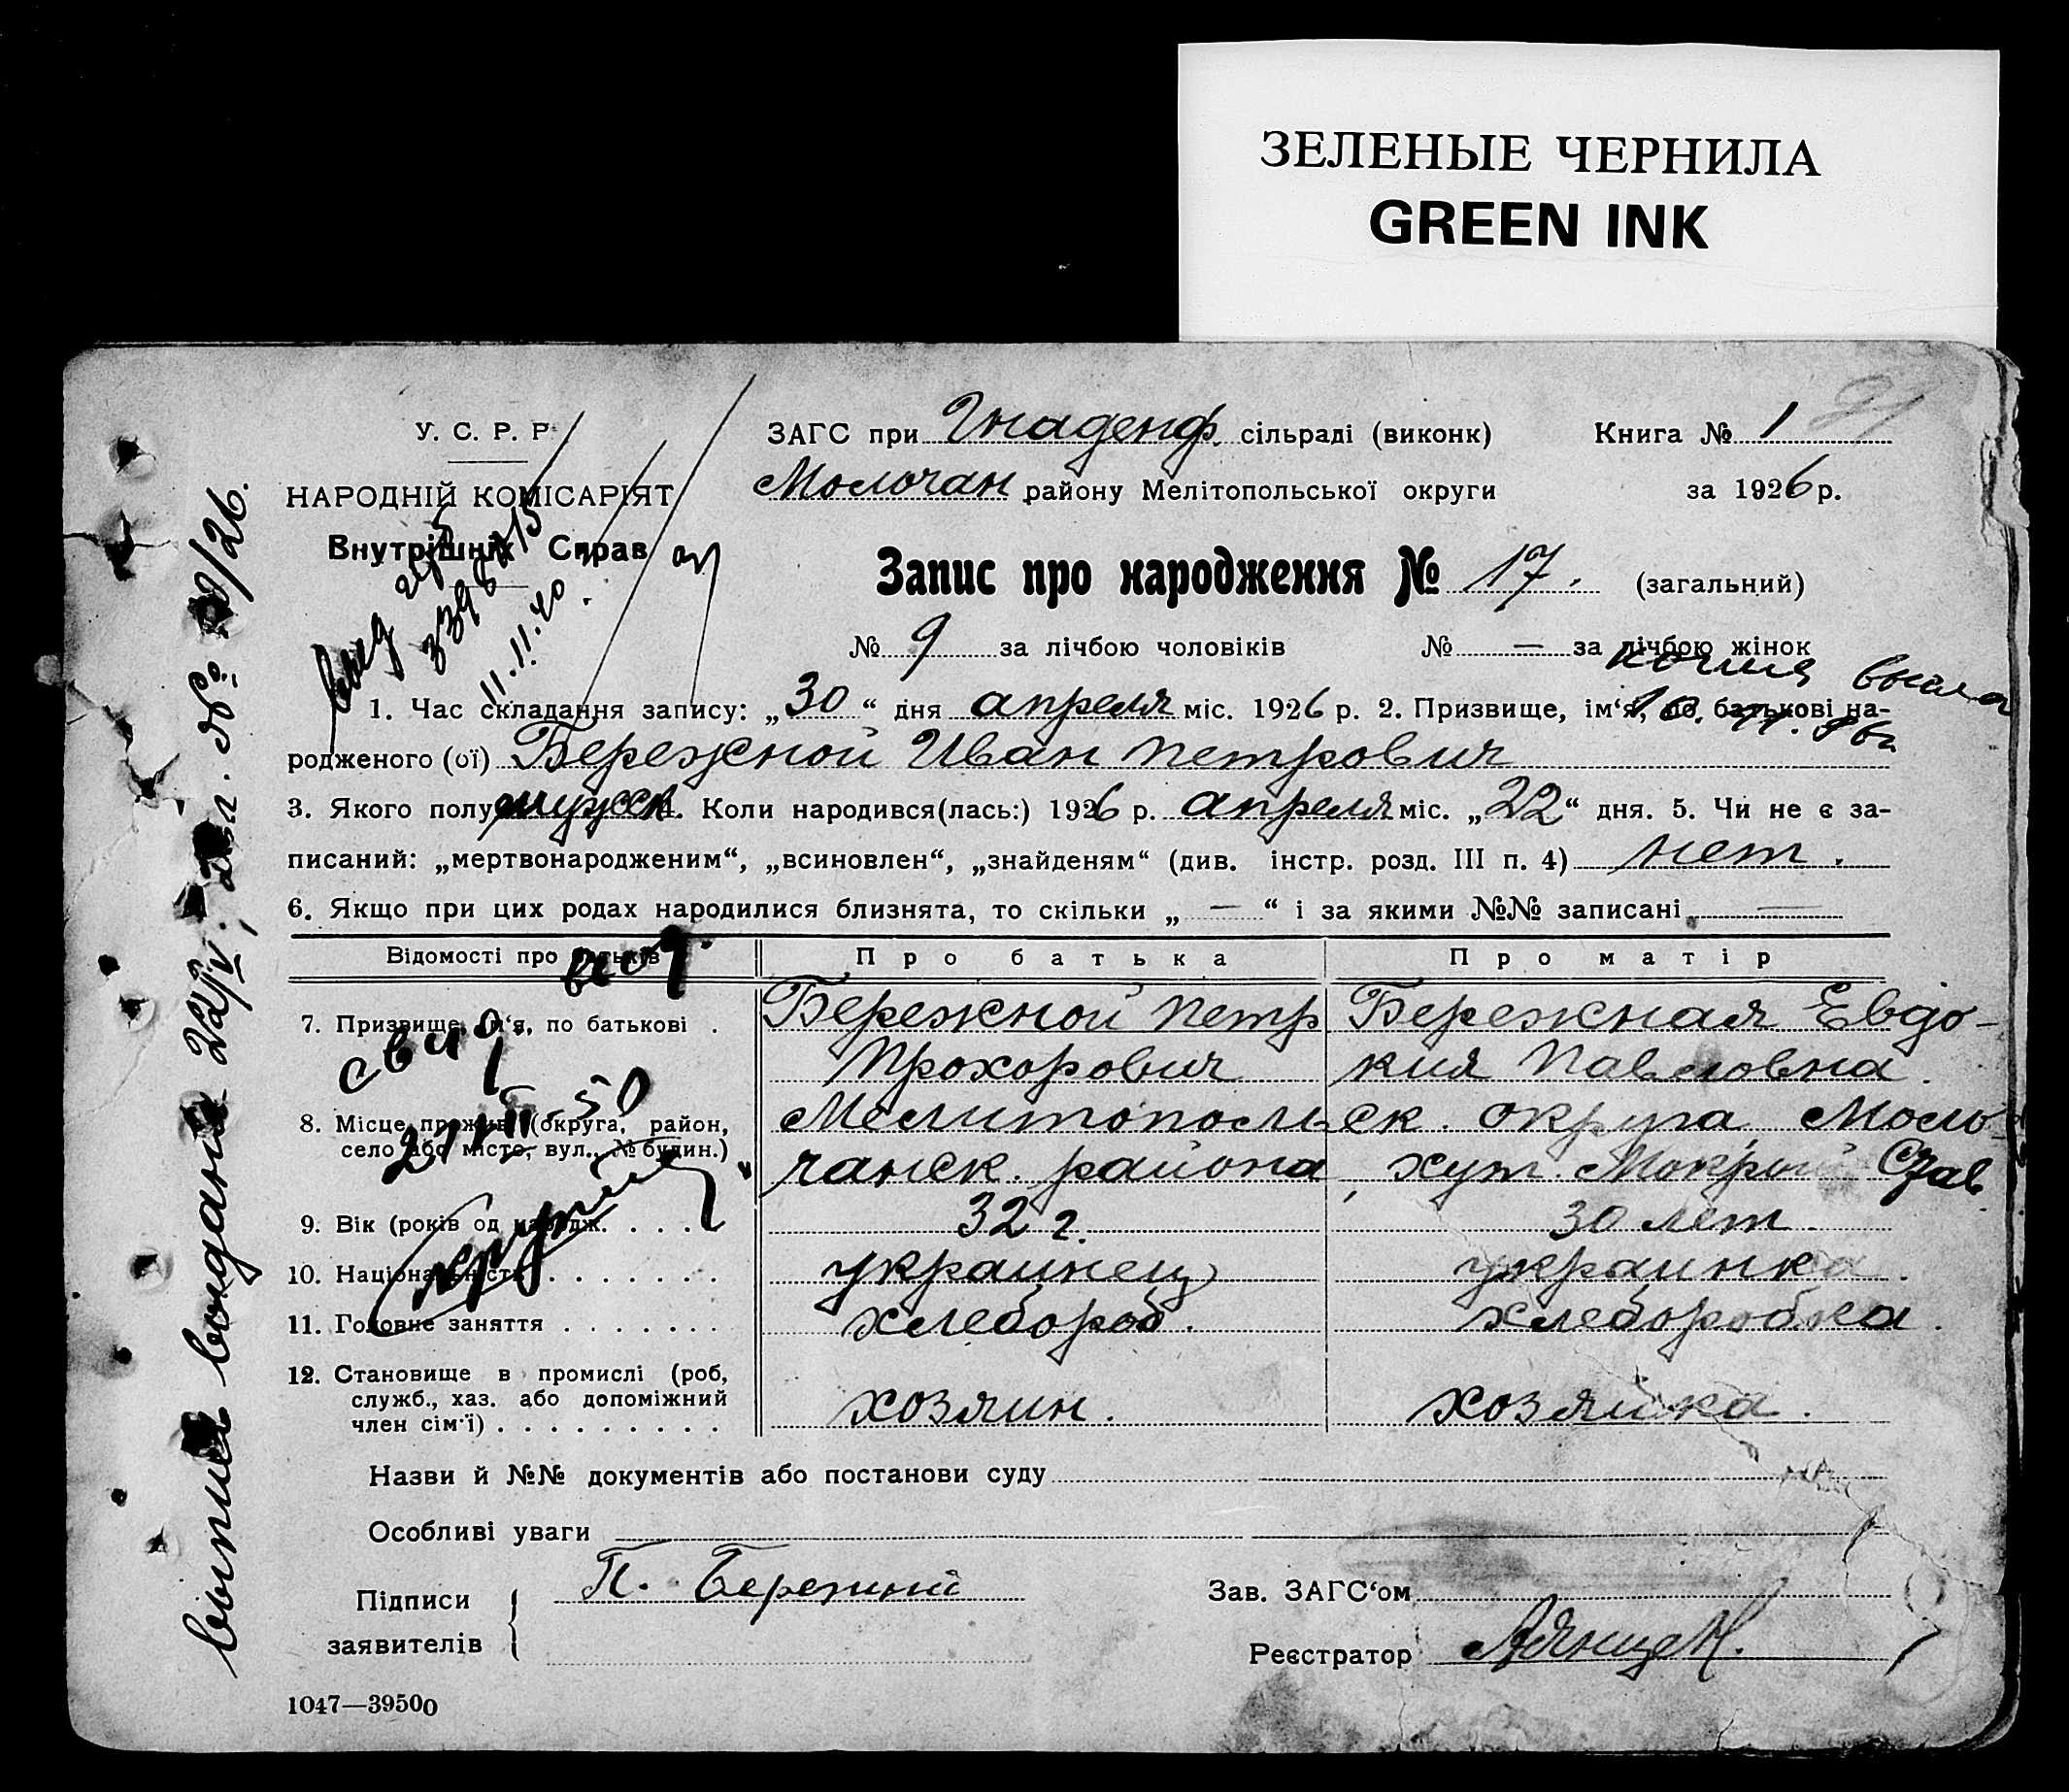 ЗЕЛЕНЫЕ ЧЕРНИЛА
GREEN INK
У. С. Р. Р.
НАРОДНІЙ КОМІСАРІЯТ
Внутрішніх Справ
ЗАГС при Гнаденф. сільраді (виконк)
Книга № 1
Молочан району Мелітопольської округи
за 1926 р.
Запис про народження № 17. (загальний)
№ 9 за лічбою чоловіків № — за лічбою жінок
11.11.40
копия
1. Час складання запису: „30“ дня апреля міс. 1926 р. 2. Призвище, ім‘я, по батькові на-
родженого (ої) Бережной Иван Петрович
3. Якого полу мужск. 4. Коли народився(лась:) 1926 р. апреля міс. „22“ дня. 5. Чи не є за-
писаний: „мертвонародженим“, „всиновлен“, „знайденям“ (див. інстр. розд. III п. 4) нет.
6. Якщо при цих родах народилися близнята, то скільки „ — “ і за якими №№ записані —
Відомості про батьків
Про батька
Про матір
7. Призвище, ім‘я, по батькові .
Бережной Петр
Прохорович
Бережная Евдо-
кия Павловна.
свид
8. Місце прожив. (округа, район,
село або місто, вул., № будин.)
Мелитопольск. округа, Моло-
чанск. района, хут. Мокрый
9. Вік (років од народж. . . .
32 г.
30 лет.
10. Національність . . . . . . .
украинец
украинка.
11. Головне заняття . . . . . . .
хлебороб.
хлеборобка.
12. Становище в промислі (роб,
служб., хаз. або допоміжний
член сім‘ї) . . . . . . . . .
хозяин.
хозяйка.
Назви й №№ документів або постанови суду
Особливі уваги
Підписи
заявителів
П. Бережний
Зав. ЗАГС‘ом
Реєстратор
1047—39500